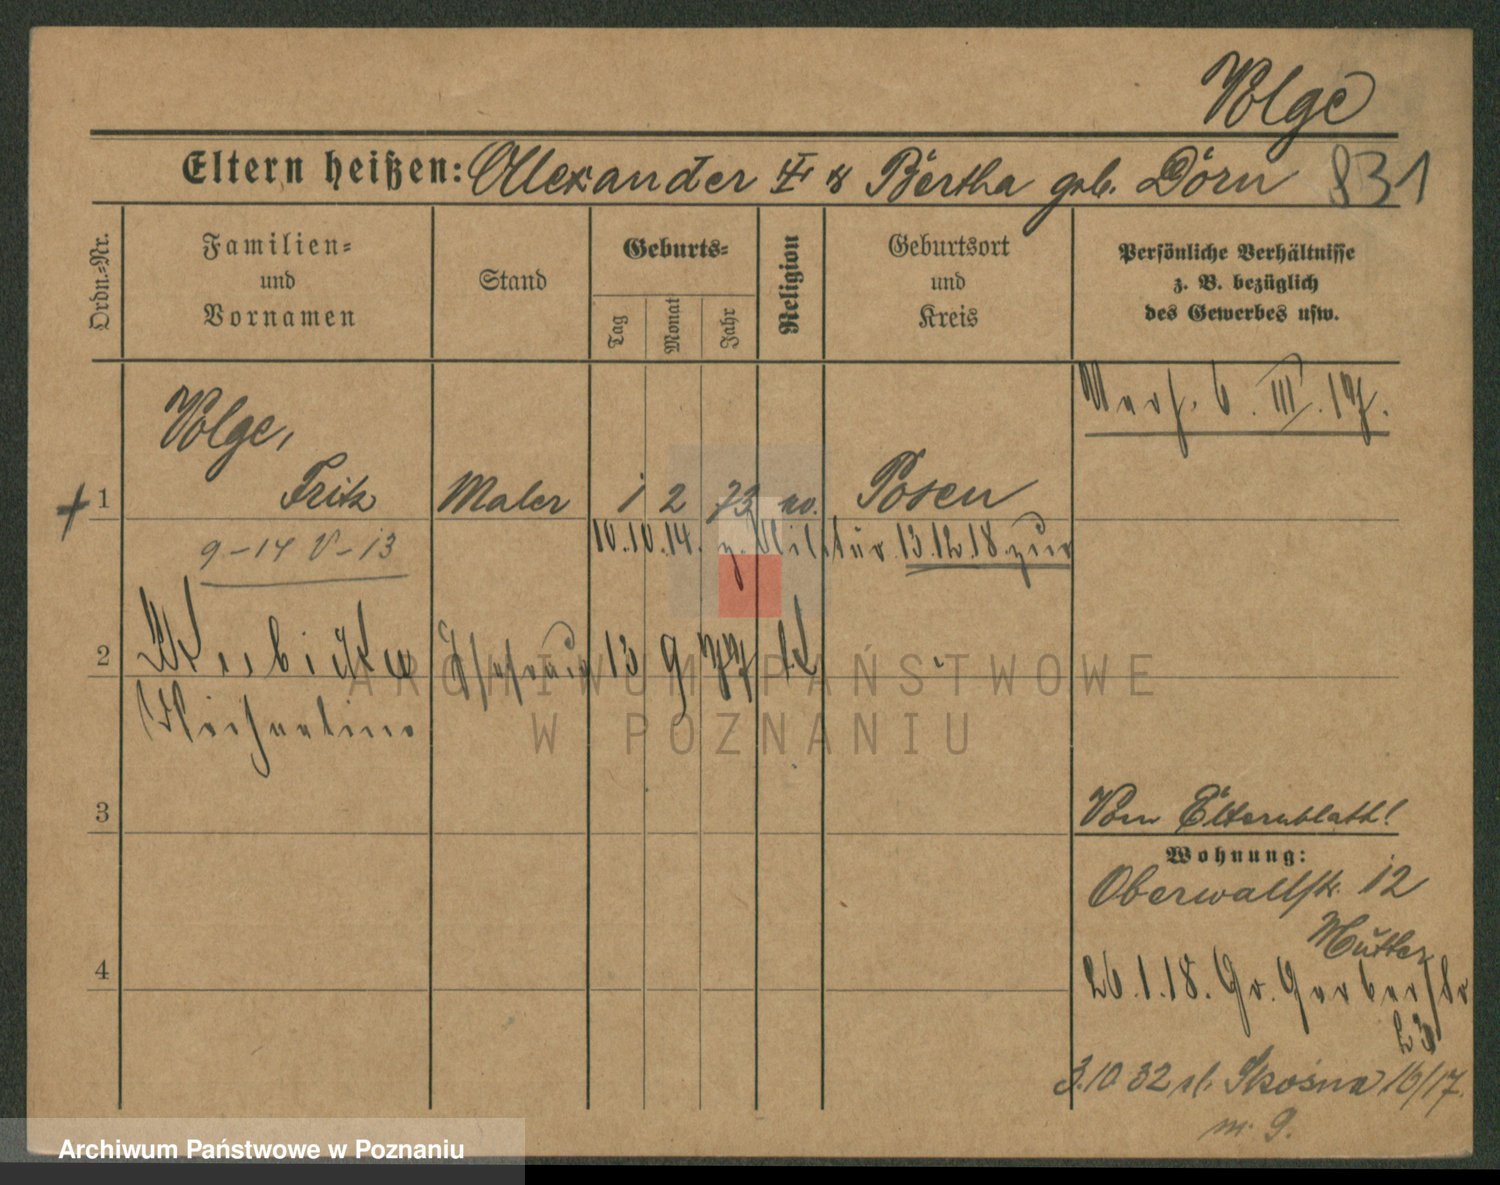 Volge
Eltern heißen: Alexander & Bertha geb. Dörn 831
Ordn.-Nr.
Familien-
und
Vornamen
Stand
Geburts-
Tag
Monat
Jahr
Religion
Geburtsort
und
Kreis
Persönliche Verhältnisse
z. B. bezüglich
des Gewerbes usw.
6. III. 17.
Volge,
1 Fritz Maler 1 2 73 Posen
9-14 V-13
10.10.14. z. Militär 13.12.18. zur
2 Ehefrau 13 9 77
ARCHIWUM PAŃSTWOWE
W POZNANIU
3
Vom Elternblatt!
Wohnung:
Oberwallstr. 12
Mutter
4
26.1.18. Gr. Gerberstr
23
3.10 32 ul. Skośna 16/17.
m. 9.
Archiwum Państwowe w Poznaniu